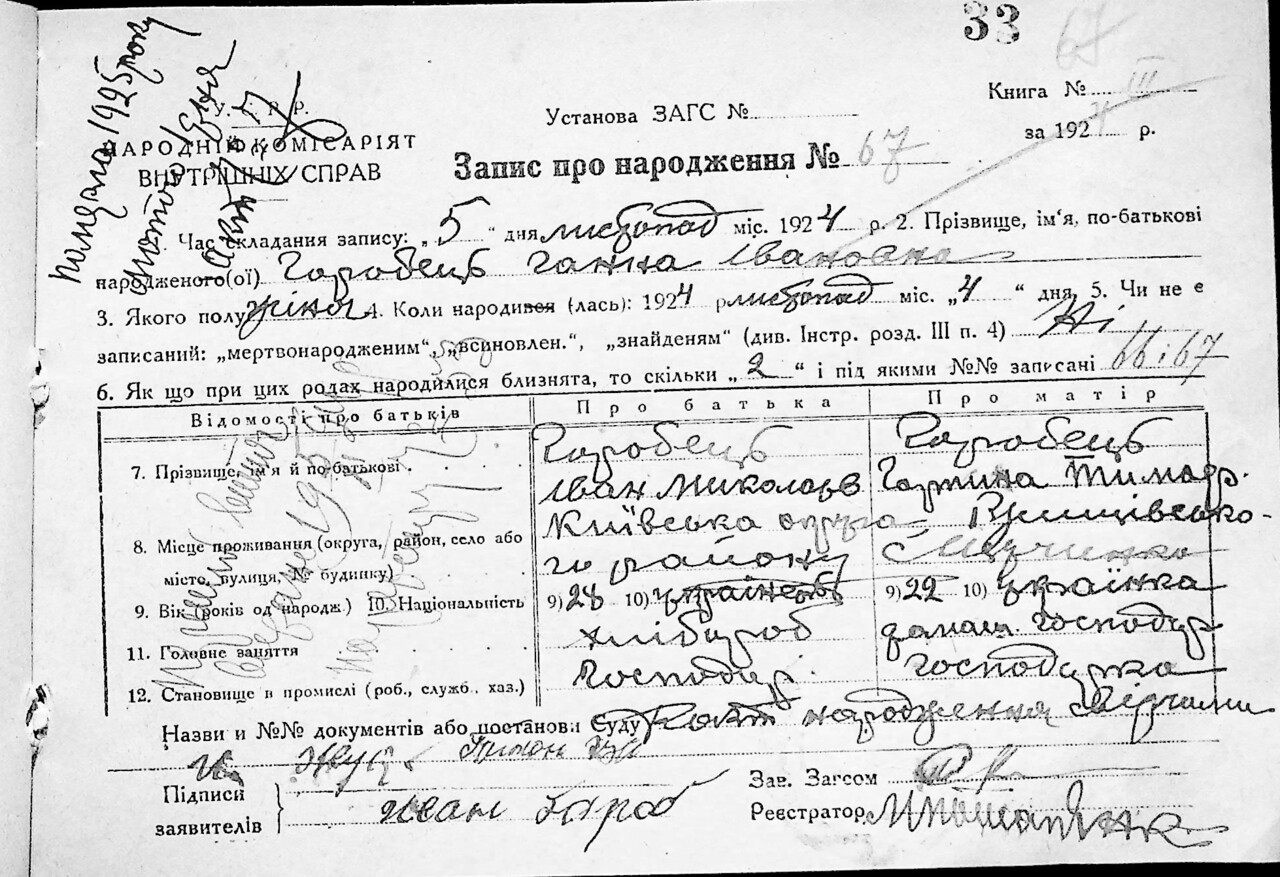 33
67
У. С. Р. Р.
НАРОДНІЙ КОМІСАРІЯТ
ВНУТРІШНІХ СПРАВ
Установа ЗАГС №
Книга № III
за 1924 р.
Запис про народження № 67
Час складання запису: „ 5 “ дня листопад міс. 1924 р. 2. Прізвище, ім‘я, по-батькові
народженого(ої) Горобець Ганна Івановна
3. Якого полу жіноч 4. Коли народився (лась): 1924 р листопад міс. „4 “ дня, 5. Чи не є
записаний: „мертвонародженим“, „всиновлен.“, „знайденям“ (див. Інстр. розд. III п. 4) Ні
6. Як що при цих родах народилися близнята, то скільки „ 2 “ і під якими №№ записані 66 і 67
Відомості про батьків Про батька Про матір
7. Прізвище, ім‘я й по-батькові Горобець Горобець
Іван Миколаєв
8. Місце проживання (округа, район, село або Київська округа
місто, вулиця, № будинку) го району
9. Вік (років од народж.) 10. Національність 9) 28 10) українець 9) 22 10) українка
11. Головне заняття хлібороб домаш. господар
12. Становище в промислі (роб., служб., хаз.) Господар господарка
Назви и №№ документів або постанови Суду Факт народження свідчили
Підписи
заявителів
Зав. Загсом
Реєстратор